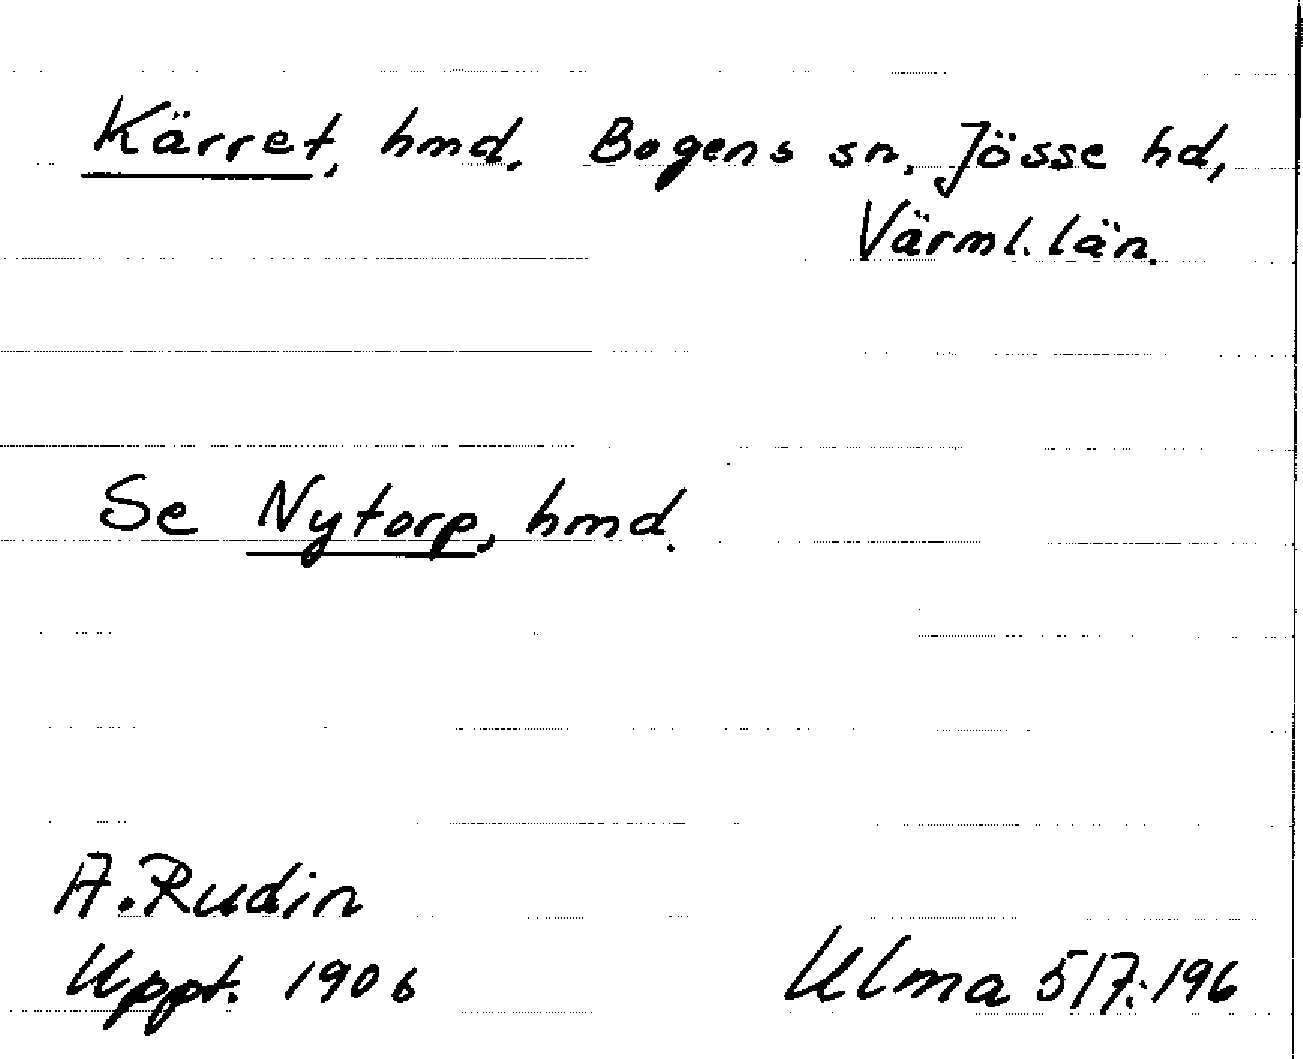 Kärret, hmd, Bogens sn, Jösse hd,
Värml. län.
Se Nytorp, hmd.
A. Rudin
Uppt. 1906
Ulma 517:196